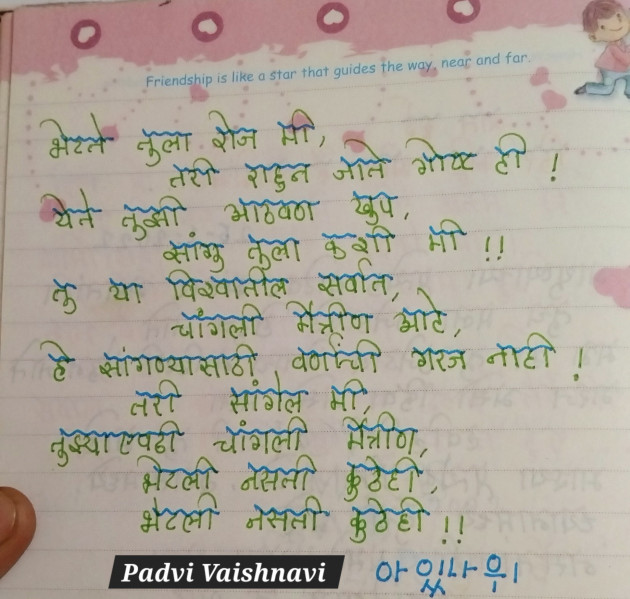 Friendship is like a star that guides the way, near and far.
भेटते तुला रोज मी,
तरी राहुन जाते गोष्ट ही !
येते तुझी आठवण खुप,
सांगु तुला कशी मी !!
तु या विश्वातील सर्वात,
चांगली मैत्रीण आहे,
हे सांगण्यासाठी वर्णाची गरज नाही !
तरी सांगेल मी,
तुझ्याएवढी चांगली मैत्रीण,
भेटली नसती कुठेही,
भेटली नसती कुठेही !!
Padvi Vaishnavi